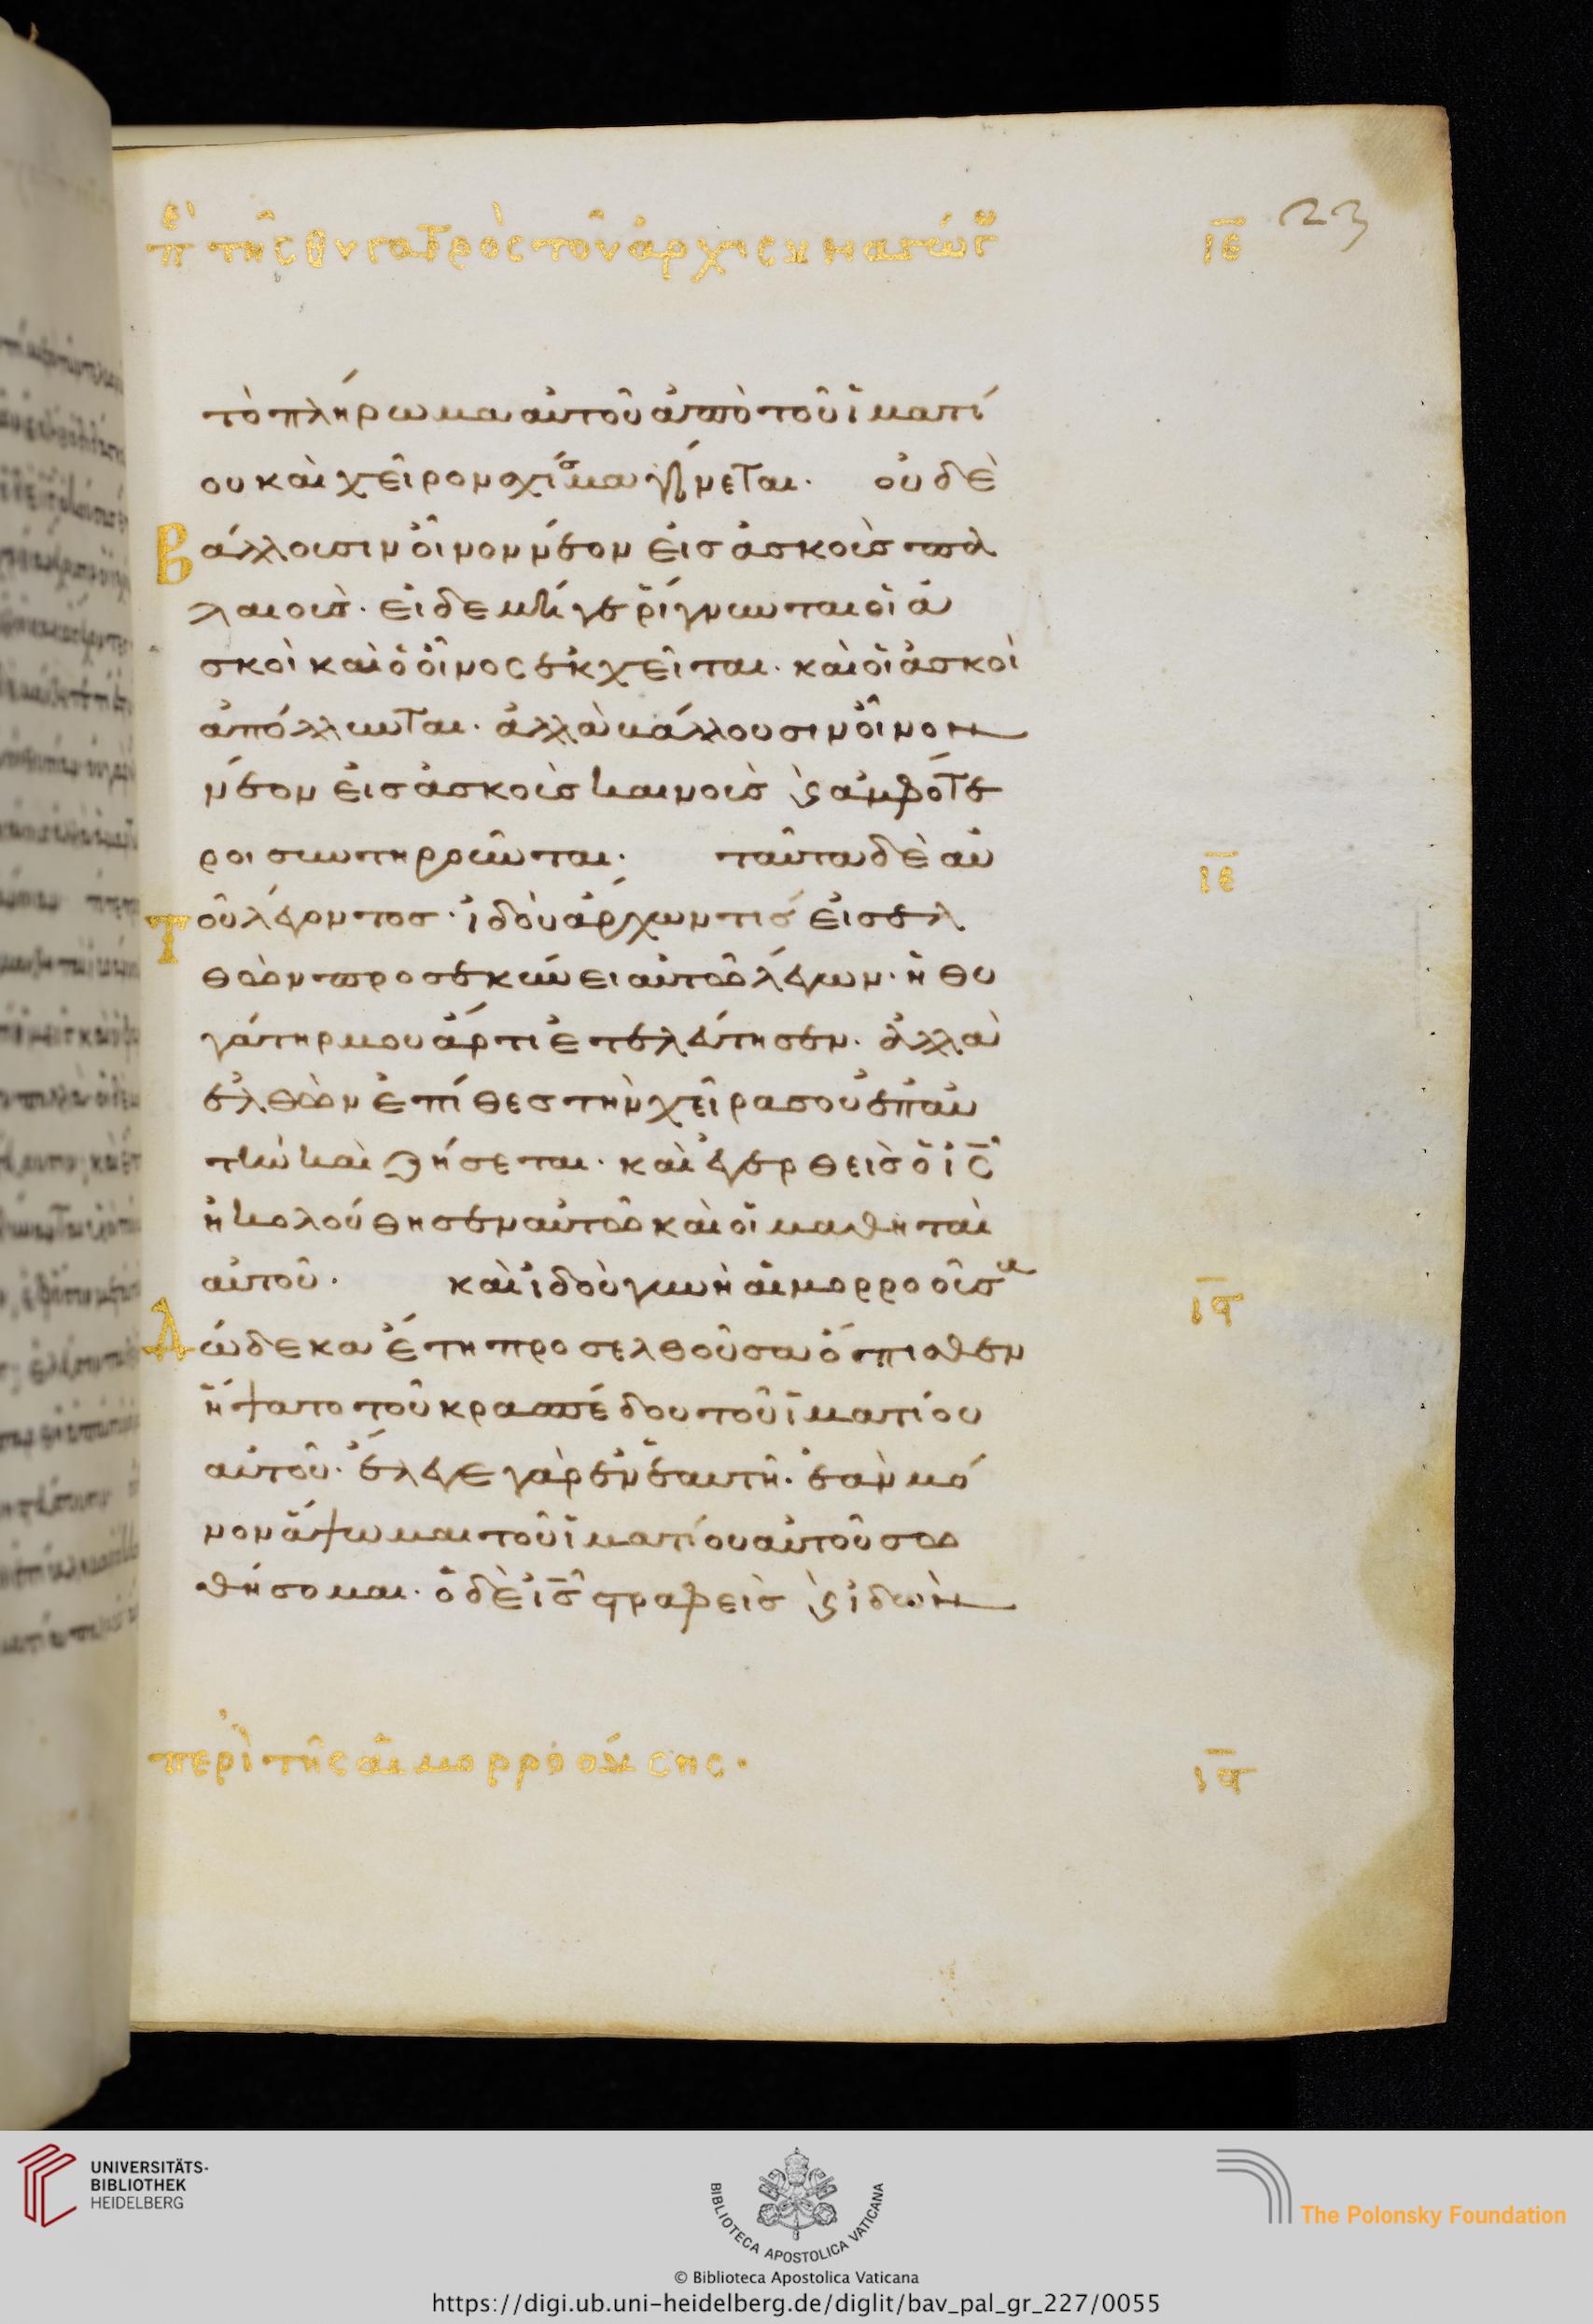 περὶ τῆς θυγατρὸς τοῦ ἀρχισυναγώγου
ιε
23
τὸ πλήρωμα αὐτοῦ ἀπὸ τοῦ ἱματί
ου καὶ χεῖρον σχίσμα γίνεται. οὐδὲ
βάλλουσιν οἶνον νέον εἰς ἀσκοὺς παλ
λαιούς. εἰ δὲ μήγε ῥίγνυνται οἱ ἀ
σκοὶ καὶ ὁ οἶνος ἐκχεῖται. καὶ οἱ ἀσκοὶ
ἀπόλλυνται. ἀλλὰ βάλλουσιν οἶνον
νέον εἰς ἀσκοὺς καινοὺς ϗ ἀμφότε
ροι συντηροῦνται. ταῦτα δὲ αὐ
ιε
τοῦ λέγοντος. ἰδοὺ ἄρχων τις εἰσελ
θὼν προσεκύνει αὐτῶ λέγων. ἡ θυ
γάτηρ μου ἄρτι ἐτελεύτησεν. ἀλλὰ
ἐλθὼν ἐπίθες τὴν χεῖρα σου ἐπ' αὐ
τὴν καὶ ζήσεται. καὶ ἐγερθεὶς ὁ ις
ἠκολούθησεν αὐτῶ καὶ οἱ μαθηταὶ
αὐτοῦ. καὶ ἰδοὺ γυνὴ αἱμορροοῦσα
ιϛ
δώδεκα ἔτη προσελθοῦσα ὄπισθεν
ἥψατο τοῦ κρασπέδου τοῦ ἱματίου
αὐτοῦ. ἔλεγε γὰρ ἐν ἑαυτῆ. ἐὰν μό
νον ἅψωμαι τοῦ ἱματίου αὐτοῦ σω
θήσομαι. ὁ δὲ ις στραφεὶς ϗ ἰδὼν
περὶ τῆς αἱμορροούσης.
ιϛ
UNIVERSITÄTS-
BIBLIOTHEK
HEIDELBERG
BIBLIOTECA APOSTOLICA VATICANA
The Polonsky Foundation
© Biblioteca Apostolica Vaticana
https://digi.ub.uni-heidelberg.de/diglit/bav_pal_gr_227/0055